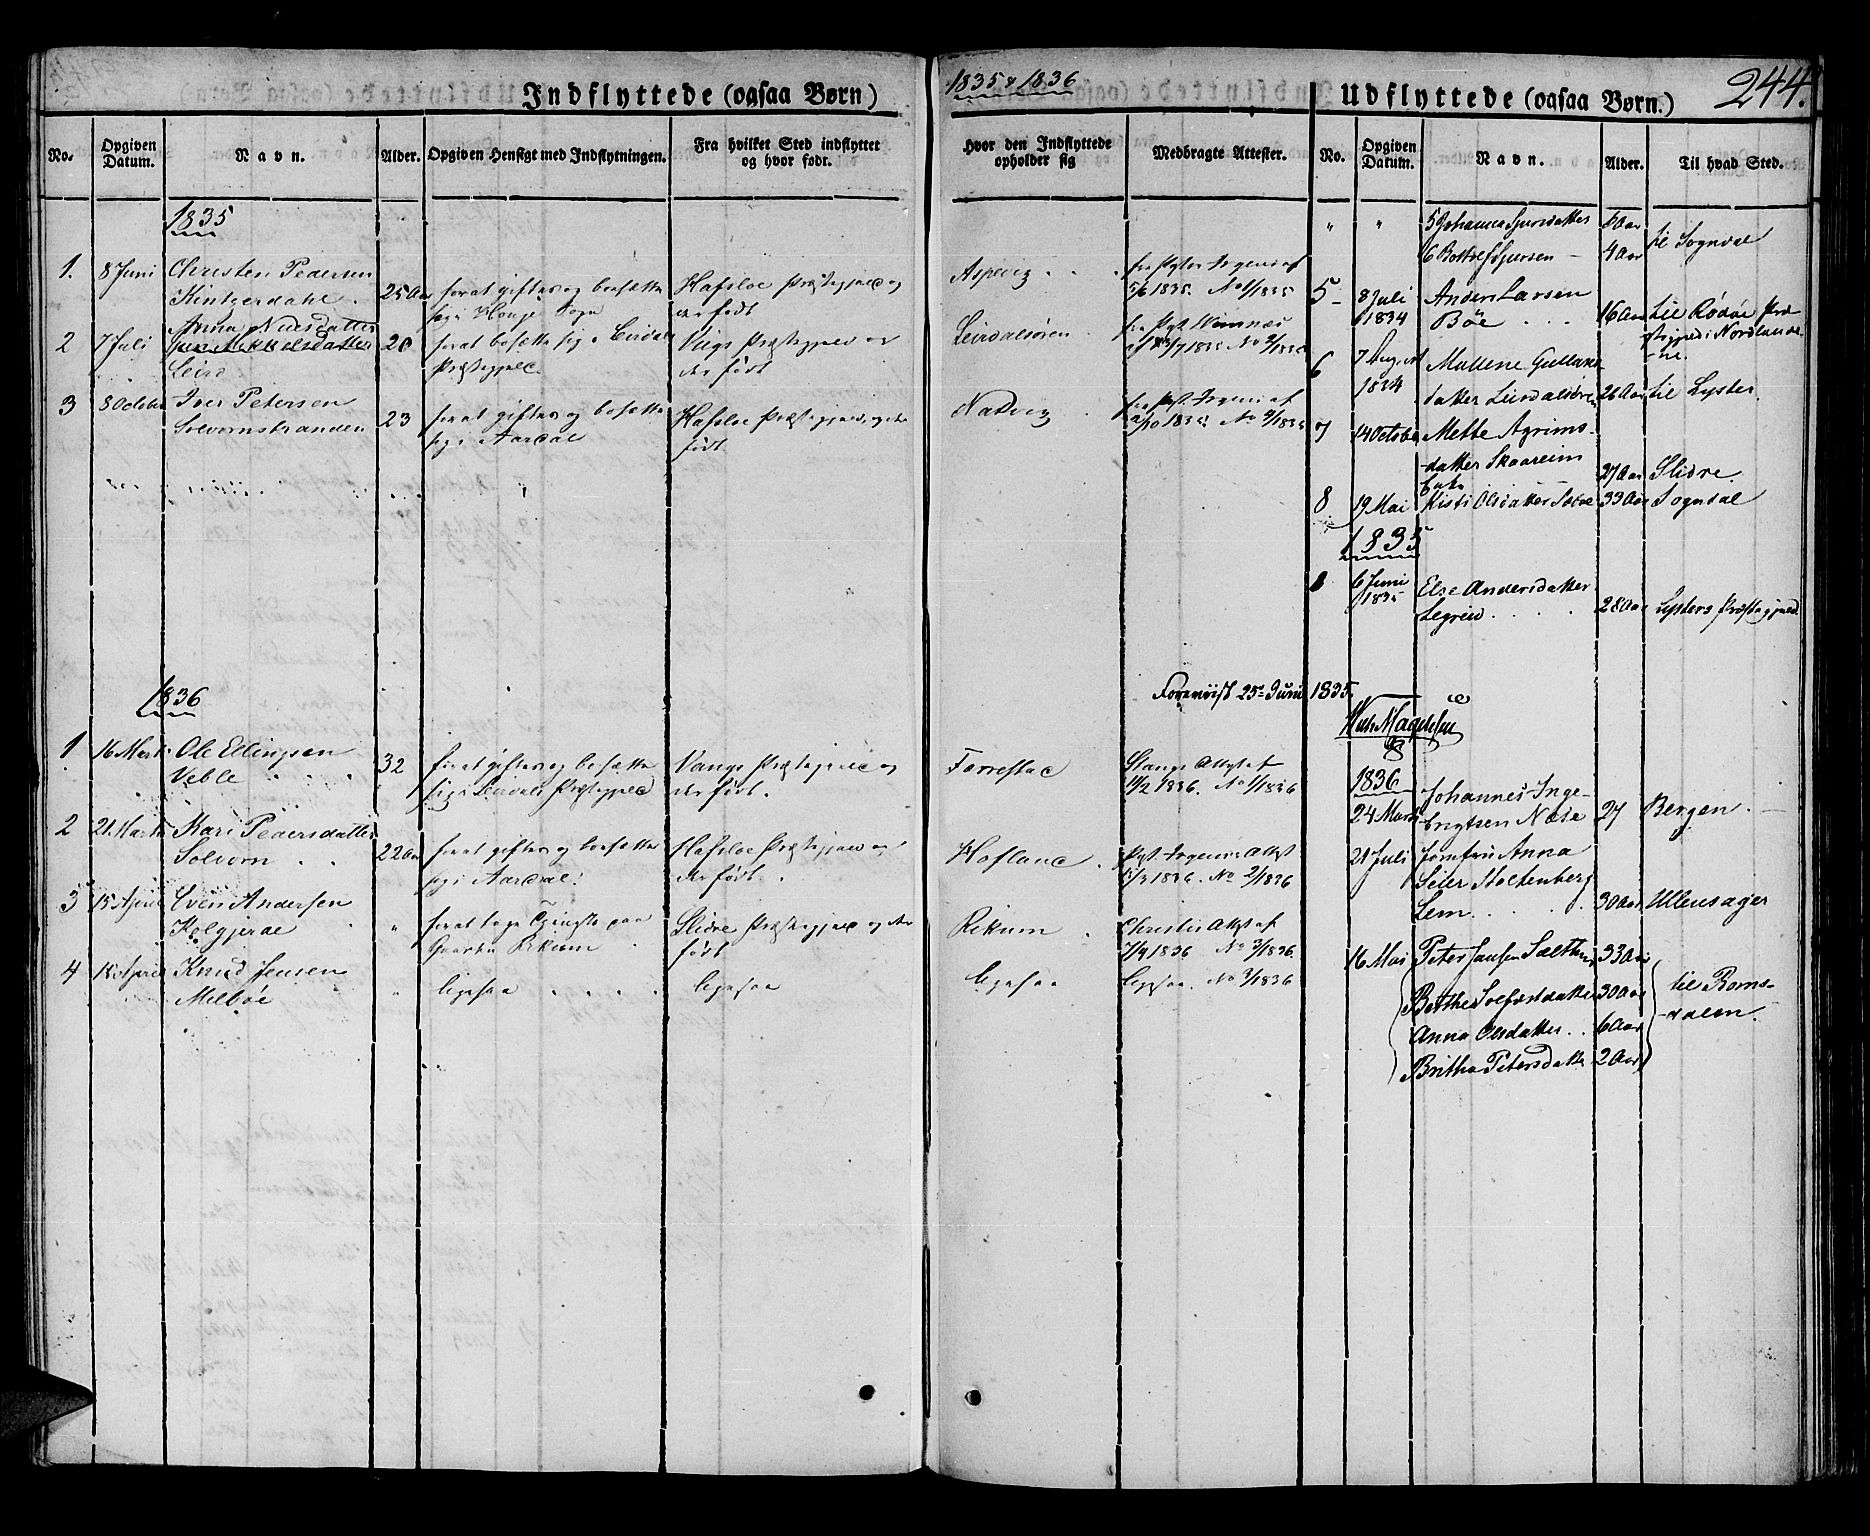 Indflyttede (ogsaa Børn)
No.
Opgiven Datum.
Navn.
Alder.
Opgiven Hensigt med Indflytningen.
Fra hvilket Sted indflyttet
og hvor født.
1835
1. 8 Juni Christen Pedersen
25 Aar for at giftes og bosætte Hafsloe Præstegjeld og
sig i Sogn der født
Anna Nielsdatter
2 7 Juli Mikkelsdatter 20 for at bosætte sig i Leirdals Viigs Præstegjeld og
Præstegjeld der født
3 8 October Iver Petersen
Solvornstranden 23 for at giftes og bosætte Hafsloe Præstegjeld, og der
sig i Aardal født.
1836
1 16 Marts Ole Ellingsen 32 for at giftes og bosætte Vangs Præstegjeld og
Veble sig i Leirdals Præstegjeld der født.
2 21 Marts Kari Pedersdatter
Solvorn 22 Aar for at giftes og bosætte Hafsloe Præstegjeld og
sig i Aardal. der født.
3 15 April Sven Andersen
Kolgjerde " for at tage Tjeneste paa Slidre Præstegjeld og der
Gaarden Rikum født
4 15 April Knud Jensen
Melbøe " ligesaa ligesaa
1835 & 1836
Hvor den Indflyttede
opholder sig
Medbragte Attester.
Aspevig
5/6 1835. No 1/1835
Leirdalsøren
No 2/1835
Nadvig
/10 1835. No 3/1835
Forreviist 25de Juni 1835.
Forrestad Stangs Attest af
11/2 1836. No 1/1836
Hofland
/3 1836. No 2/1836
Rikum Christies Attest af
7/4 1836 No 3/1836.
ligesaa ligesaa. No 3/1836
Udflyttede (ogsaa Børn.)
244.
No.
Opgiven
Datum.
Navn.
Alder.
Til hvad Sted.
" " 5 Johanna Sjursdatter 6 Aar
6 Botolf Sjursen 4 Aar til Sogndal
5 8 Juli Anders Larsen
1834 Bøe 16 Aar til Rødøe Præ
stegjeld i Nordlande
ne.
6 7 August Mallene Gullaks
1834 datter Leirdalsøren 26 Aar til Lyster.
7 14 October Mette Agrims-
datter Skaareim 27 Aar Slidre.
8 19 Mai Kisti Olsdatter 33 Aar Sogndal
1835
1 6 Juni Else Andersdatter
1835 Legreid 28 Aar Lysters Præstegjeld
1836
24 Marts Johannes Inge-
brigtsen Næse 27 Bergen.
21 Juli Jomfru Anna
Seier Stoltenberg
Lem 30 Aar Ullensager
16 Mai Peter Jansen 33 Aar
Berthe Solfæstdatter 30 Aar til Roms-
Anna Olsdatter 6 Aar dalen.
Britha Petersdatter 2 Aar